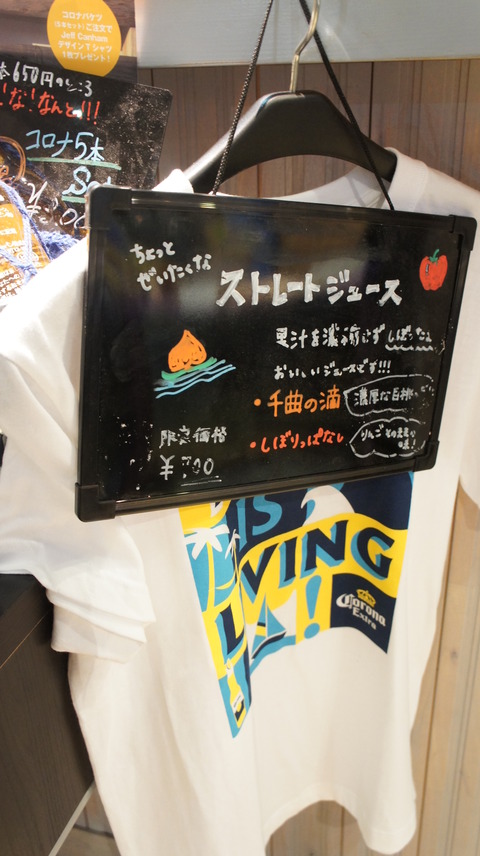 コロナバケツ
(5本セット)ご注文で
Jeff Canham
デザインTシャツ
1枚プレゼント!
本650円の
な!なんと!!!
コロナ5本
ちょっと
ぜいたくな
ストレートジュース
果汁を濃縮せずしぼった
おいしいジュースです!!!
・千曲の滴
濃厚な白桃
・しぼりっぱなし
りんごそのままの
味!
限定価格
IS
LIVING
!
Corona
Extra